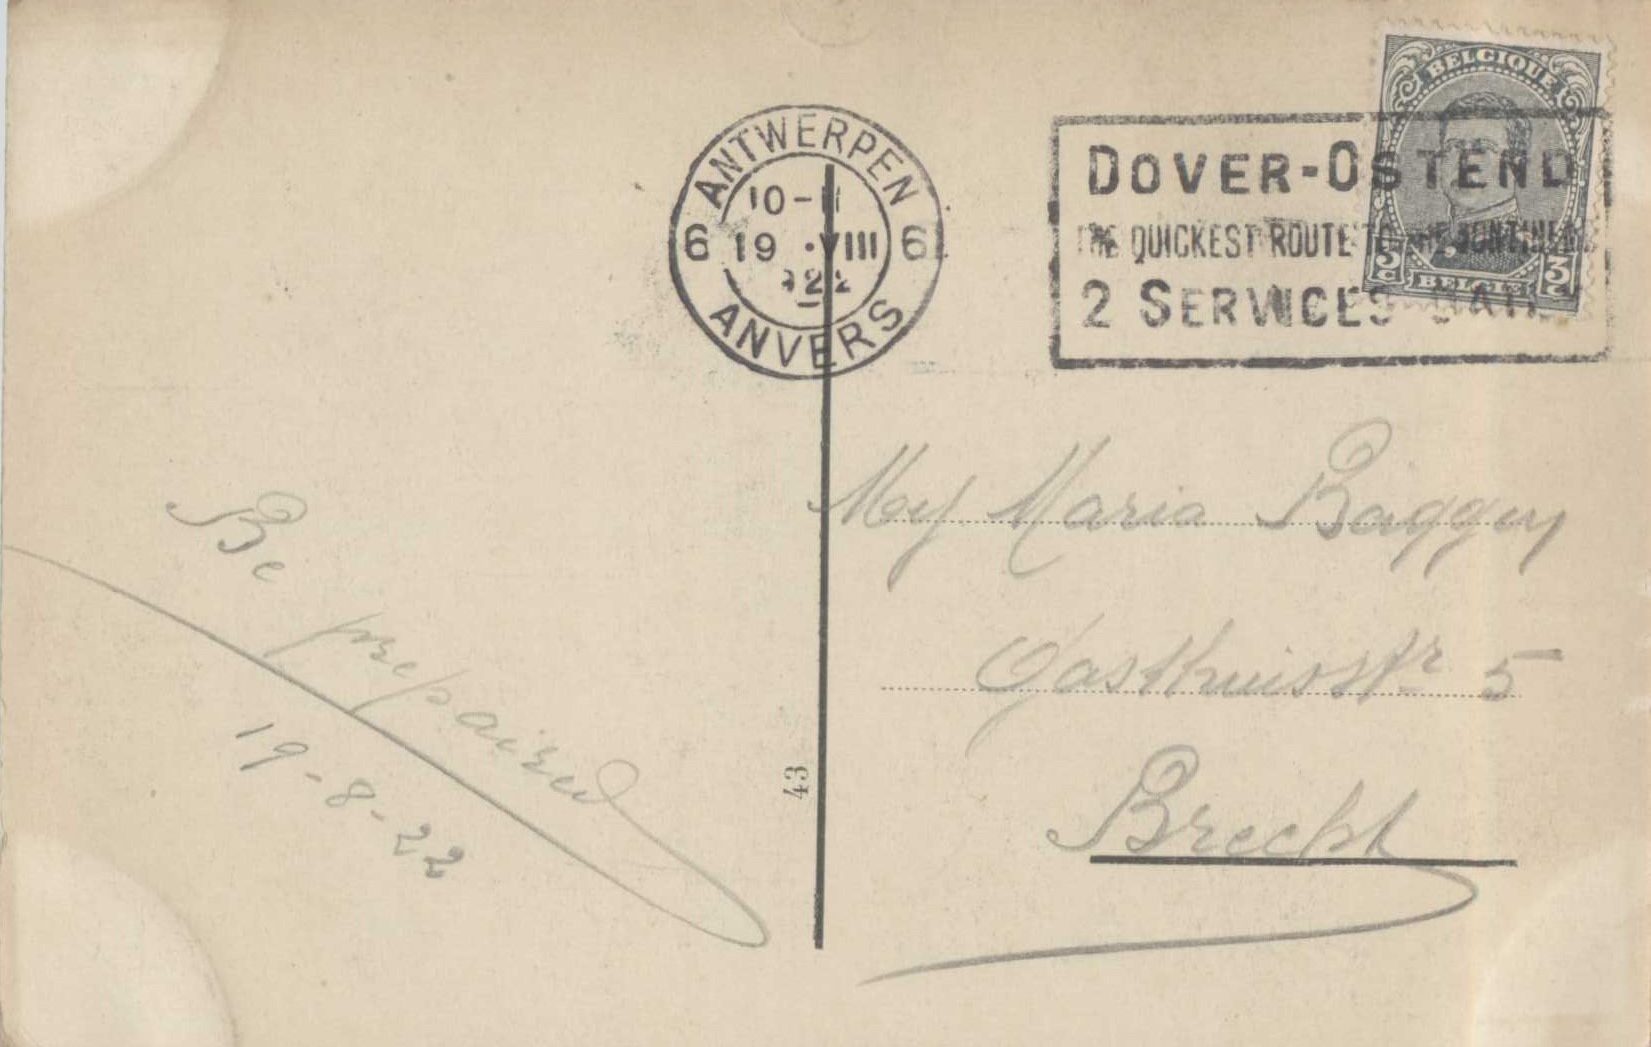 ANTWERPEN
6 10-11 6
19 VIII
1922
ANVERS
DOVER-OSTEND
THE QUICKEST ROUTE TO THE CONTINENT
2 SERVICES DAILY
BELGIQUE
3c 3c
BELGIË
Be
prepaired
19-8-22
43
Mej Maria
Gasthuisstr 5
Brecht